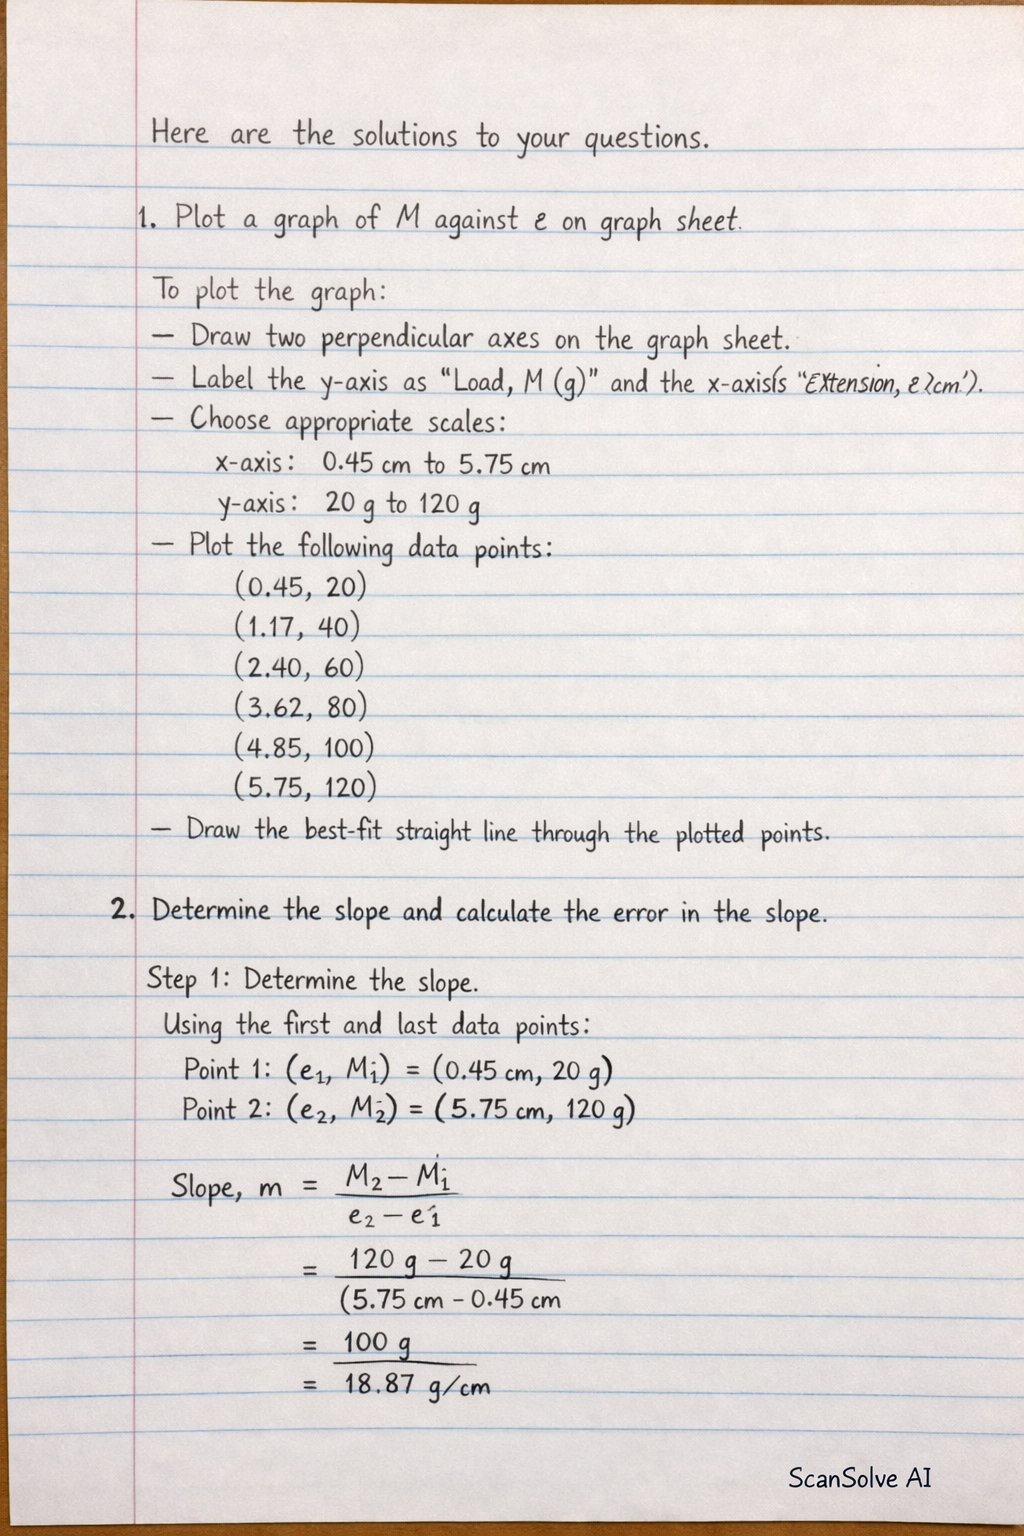 Here are the solutions to your questions.
1. Plot a graph of M against e on graph sheet.
To plot the graph:
— Draw two perpendicular axes on the graph sheet.
— Label the y-axis as “Load, M (g)” and the x-axis(s “Extension, e (cm').
— Choose appropriate scales:
x-axis: 0.45 cm to 5.75 cm
y-axis: 20 g to 120 g
— Plot the following data points:
(0.45, 20)
(1.17, 40)
(2.40, 60)
(3.62, 80)
(4.85, 100)
(5.75, 120)
— Draw the best-fit straight line through the plotted points.
2. Determine the slope and calculate the error in the slope.
Step 1: Determine the slope.
Using the first and last data points:
Point 1: (e₁, M₁) = (0.45 cm, 20 g)
Point 2: (e₂, M₂) = (5.75 cm, 120 g)
Slope, m = M₂ — M₁
e₂ — e₁
= 120 g — 20 g
(5.75 cm - 0.45 cm
= 100 g
= 18.87 g/cm
ScanSolve AI